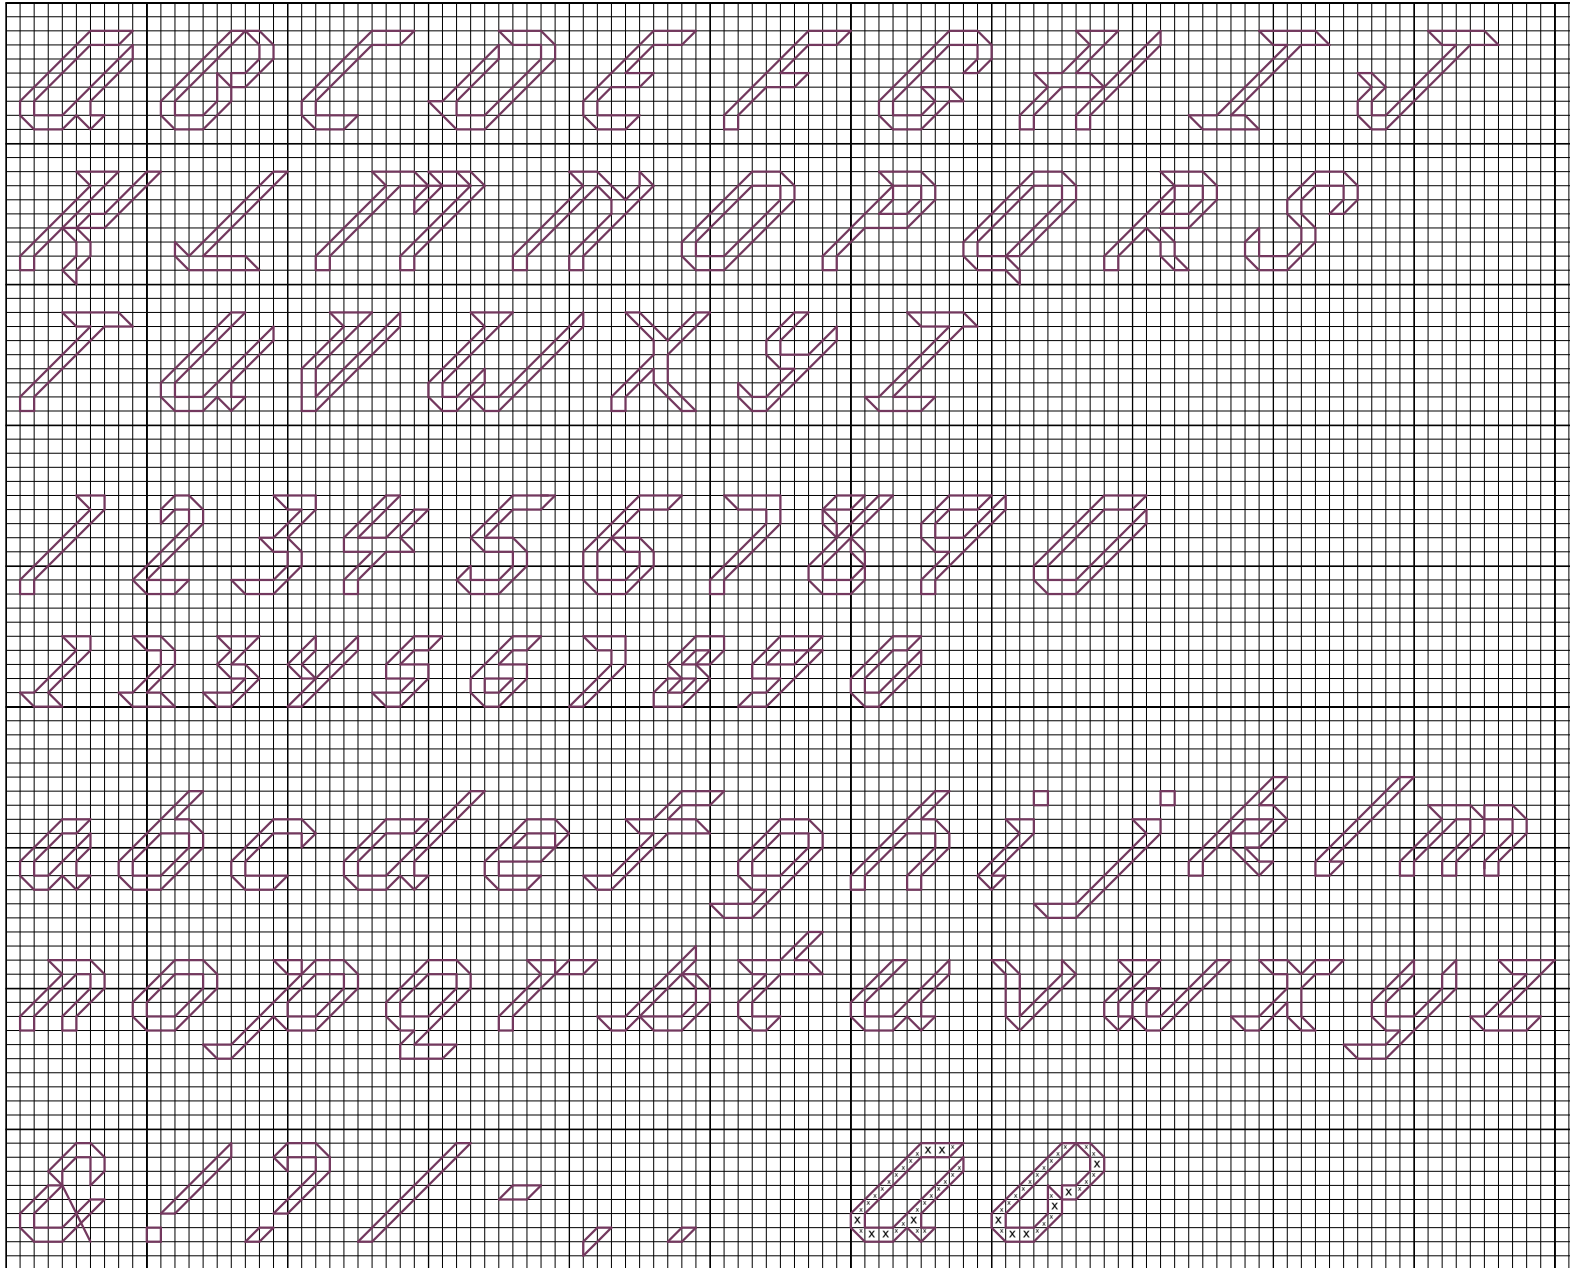 A B C D E F G H I J
K L M N O P Q R S
T U V W X Y Z
1 2 3 4 5 6 7 8 9 0
1 2 3 4 5 6 7 8 9 0
a b c d e f g h i j k l m
n o p q r s t u v w x y z
& ! ? / - , . A B